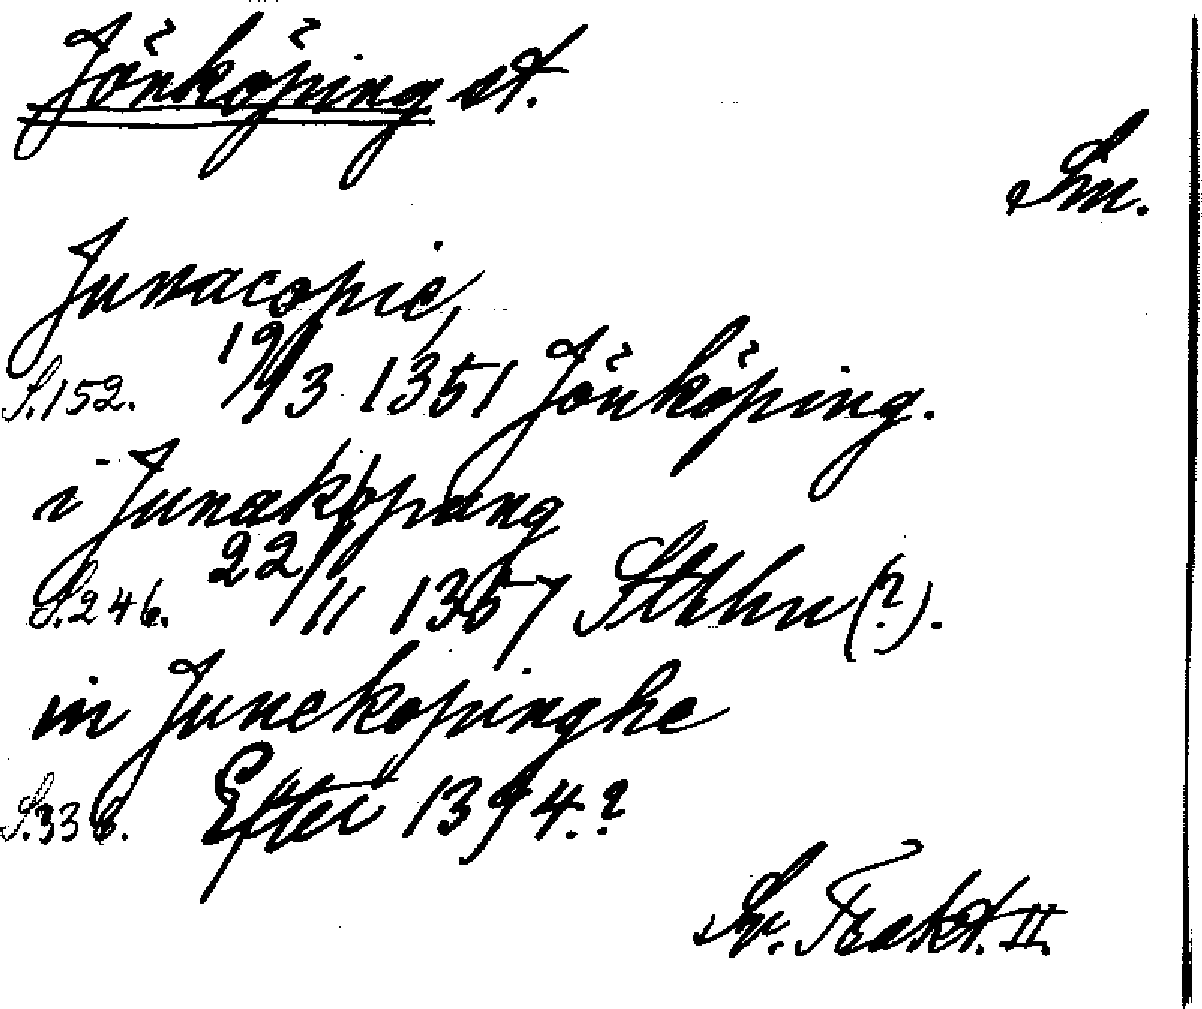 Jönköping st.
Sm.
Junacopie,
S.152. 19/3 1351 Jönköping.
i Junakøpung
S.246. 22/11 1357 Sthlm (?).
in Junekopinghe
S.338. Efter 1394.?
Sv. Trakt. II.